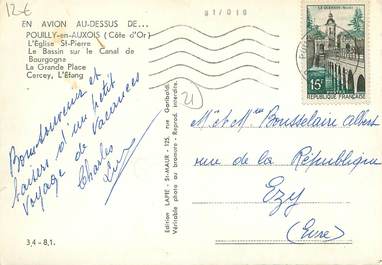 12€
EN AVION AU-DESSUS DE...
POUILLY-en-AUXOIS (Côte d'Or)
L'Eglise St-Pierre
Le Bassin sur le Canal de
Bourgogne
La Grande Place
Cercey, L'Étang
Bons souvenirs et
baisers d'un petit
voyage de vacances
Charles
3,4 - 8,1.
Edition LAPIE, St-MAUR - 125, rue Garibaldi
Véritable photo au bromure - Reprod. interdite.
21
LE QUESNOY
15F
POSTES
REPUBLIQUE FRANÇAISE
M. et Mme Bousselaire Albert
rue de la République
Ezy
(Eure)